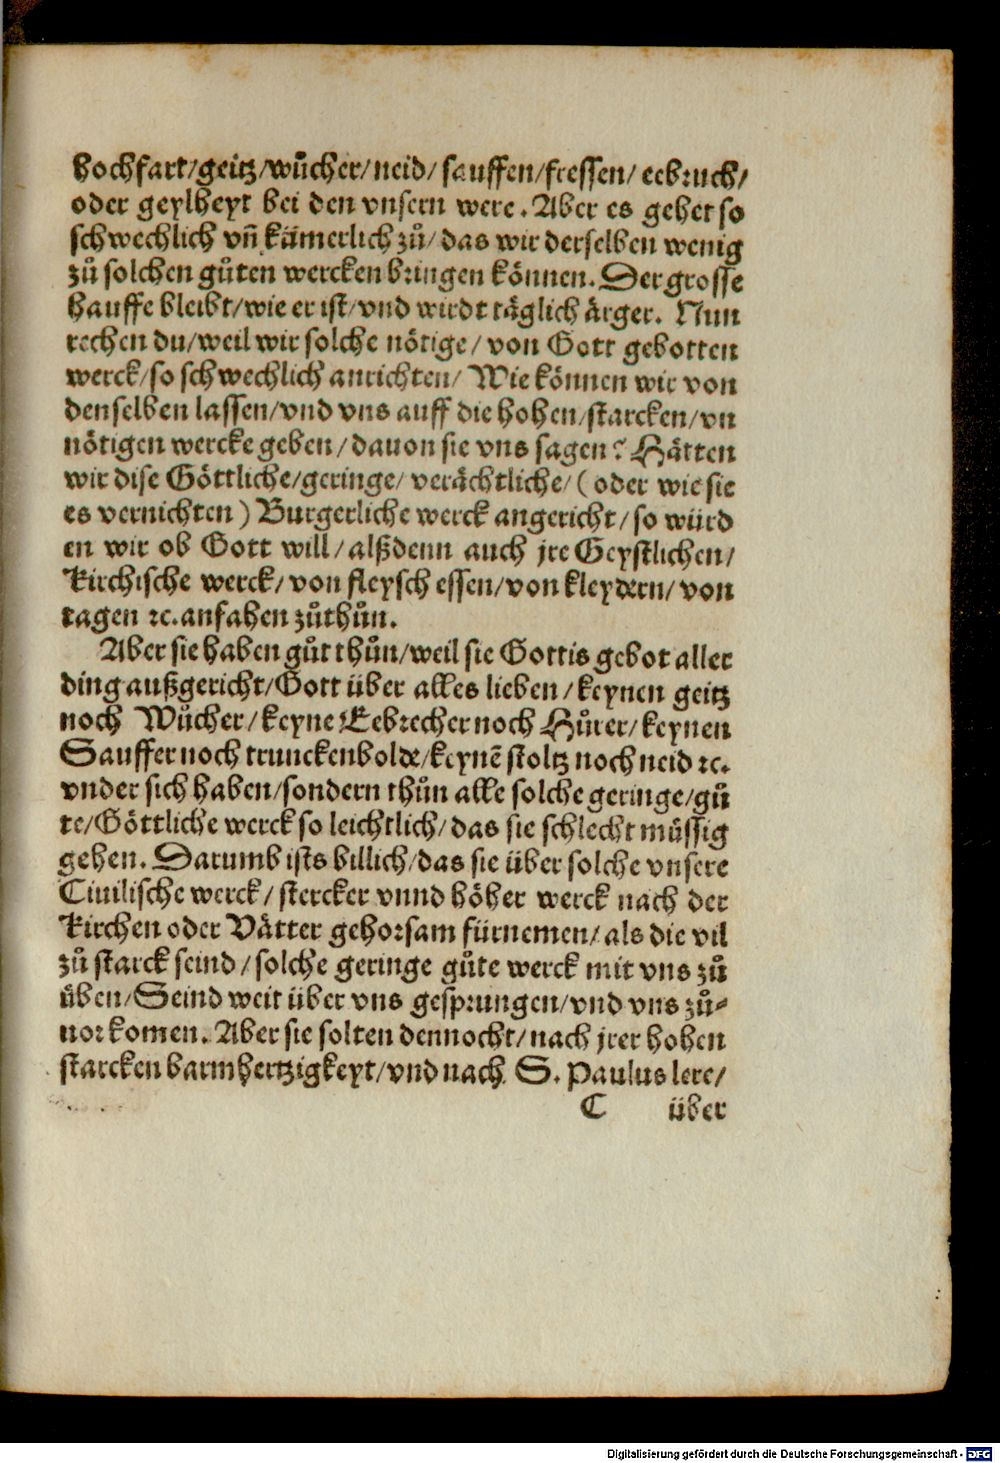 hochfart/geitz/wůcher/neid/sauffen/fressen/eebruch/
oder geylheyt bei den vnsern were. Aber es gehet so
schwechlich vñ kämerlich zů/das wir derselben wenig
zů solchen gůten wercken bringen können. Der grosse
hauffe bleibt/wie er ist/vnd wirdt täglich ärger. Nun
rechen du/weil wir solche nötige/von Gott gebotten
werck/so schwechlich anrichten/Wie können wir von
denselben lassen/vnd vns auff die hohen/starcken/vn
nötigen wercke geben/dauon sie vns sagen? Hätten
wir dise Göttliche/geringe/verächtliche/(oder wie sie
es vernichten) Burgerliche werck angericht/so würd
en wir ob Gott will/alßdenn auch jre Geystlichen/
Kirchische werck/von fleysch essen/von kleydern/von
tagen ꝛc. anfahen zůthůn.
Aber sie haben gůt thůn/weil sie Gottis gebot aller
ding außgericht/Gott über alles lieben/keynen geitz
noch Wůcher/keyne Eebrecher noch Hůrer/keynen
Sauffer noch trunckenbolde/keynē stoltz noch neid ꝛc.
vnder sich haben/sondern thůn alle solche geringe/gů
te/Göttliche werck so leichtlich/das sie schlecht müssig
gehen. Darumb ists billich/das sie über solche vnsere
Ciuilische werck/stercker vnnd höher werck nach der
Kirchen oder Vätter gehorsam fürnemen/als die vil
zů starck seind/solche geringe gůte werck mit vns zů
üben/Seind weit über vns gesprungen/vnd vns zů⸗
uor komen. Aber sie solten dennocht/nach jrer hohen
starcken barmhertzigkeyt/vnd nach S. Paulus lere/
C über
Digitalisierung gefördert durch die Deutsche Forschungsgemeinschaft - DFG